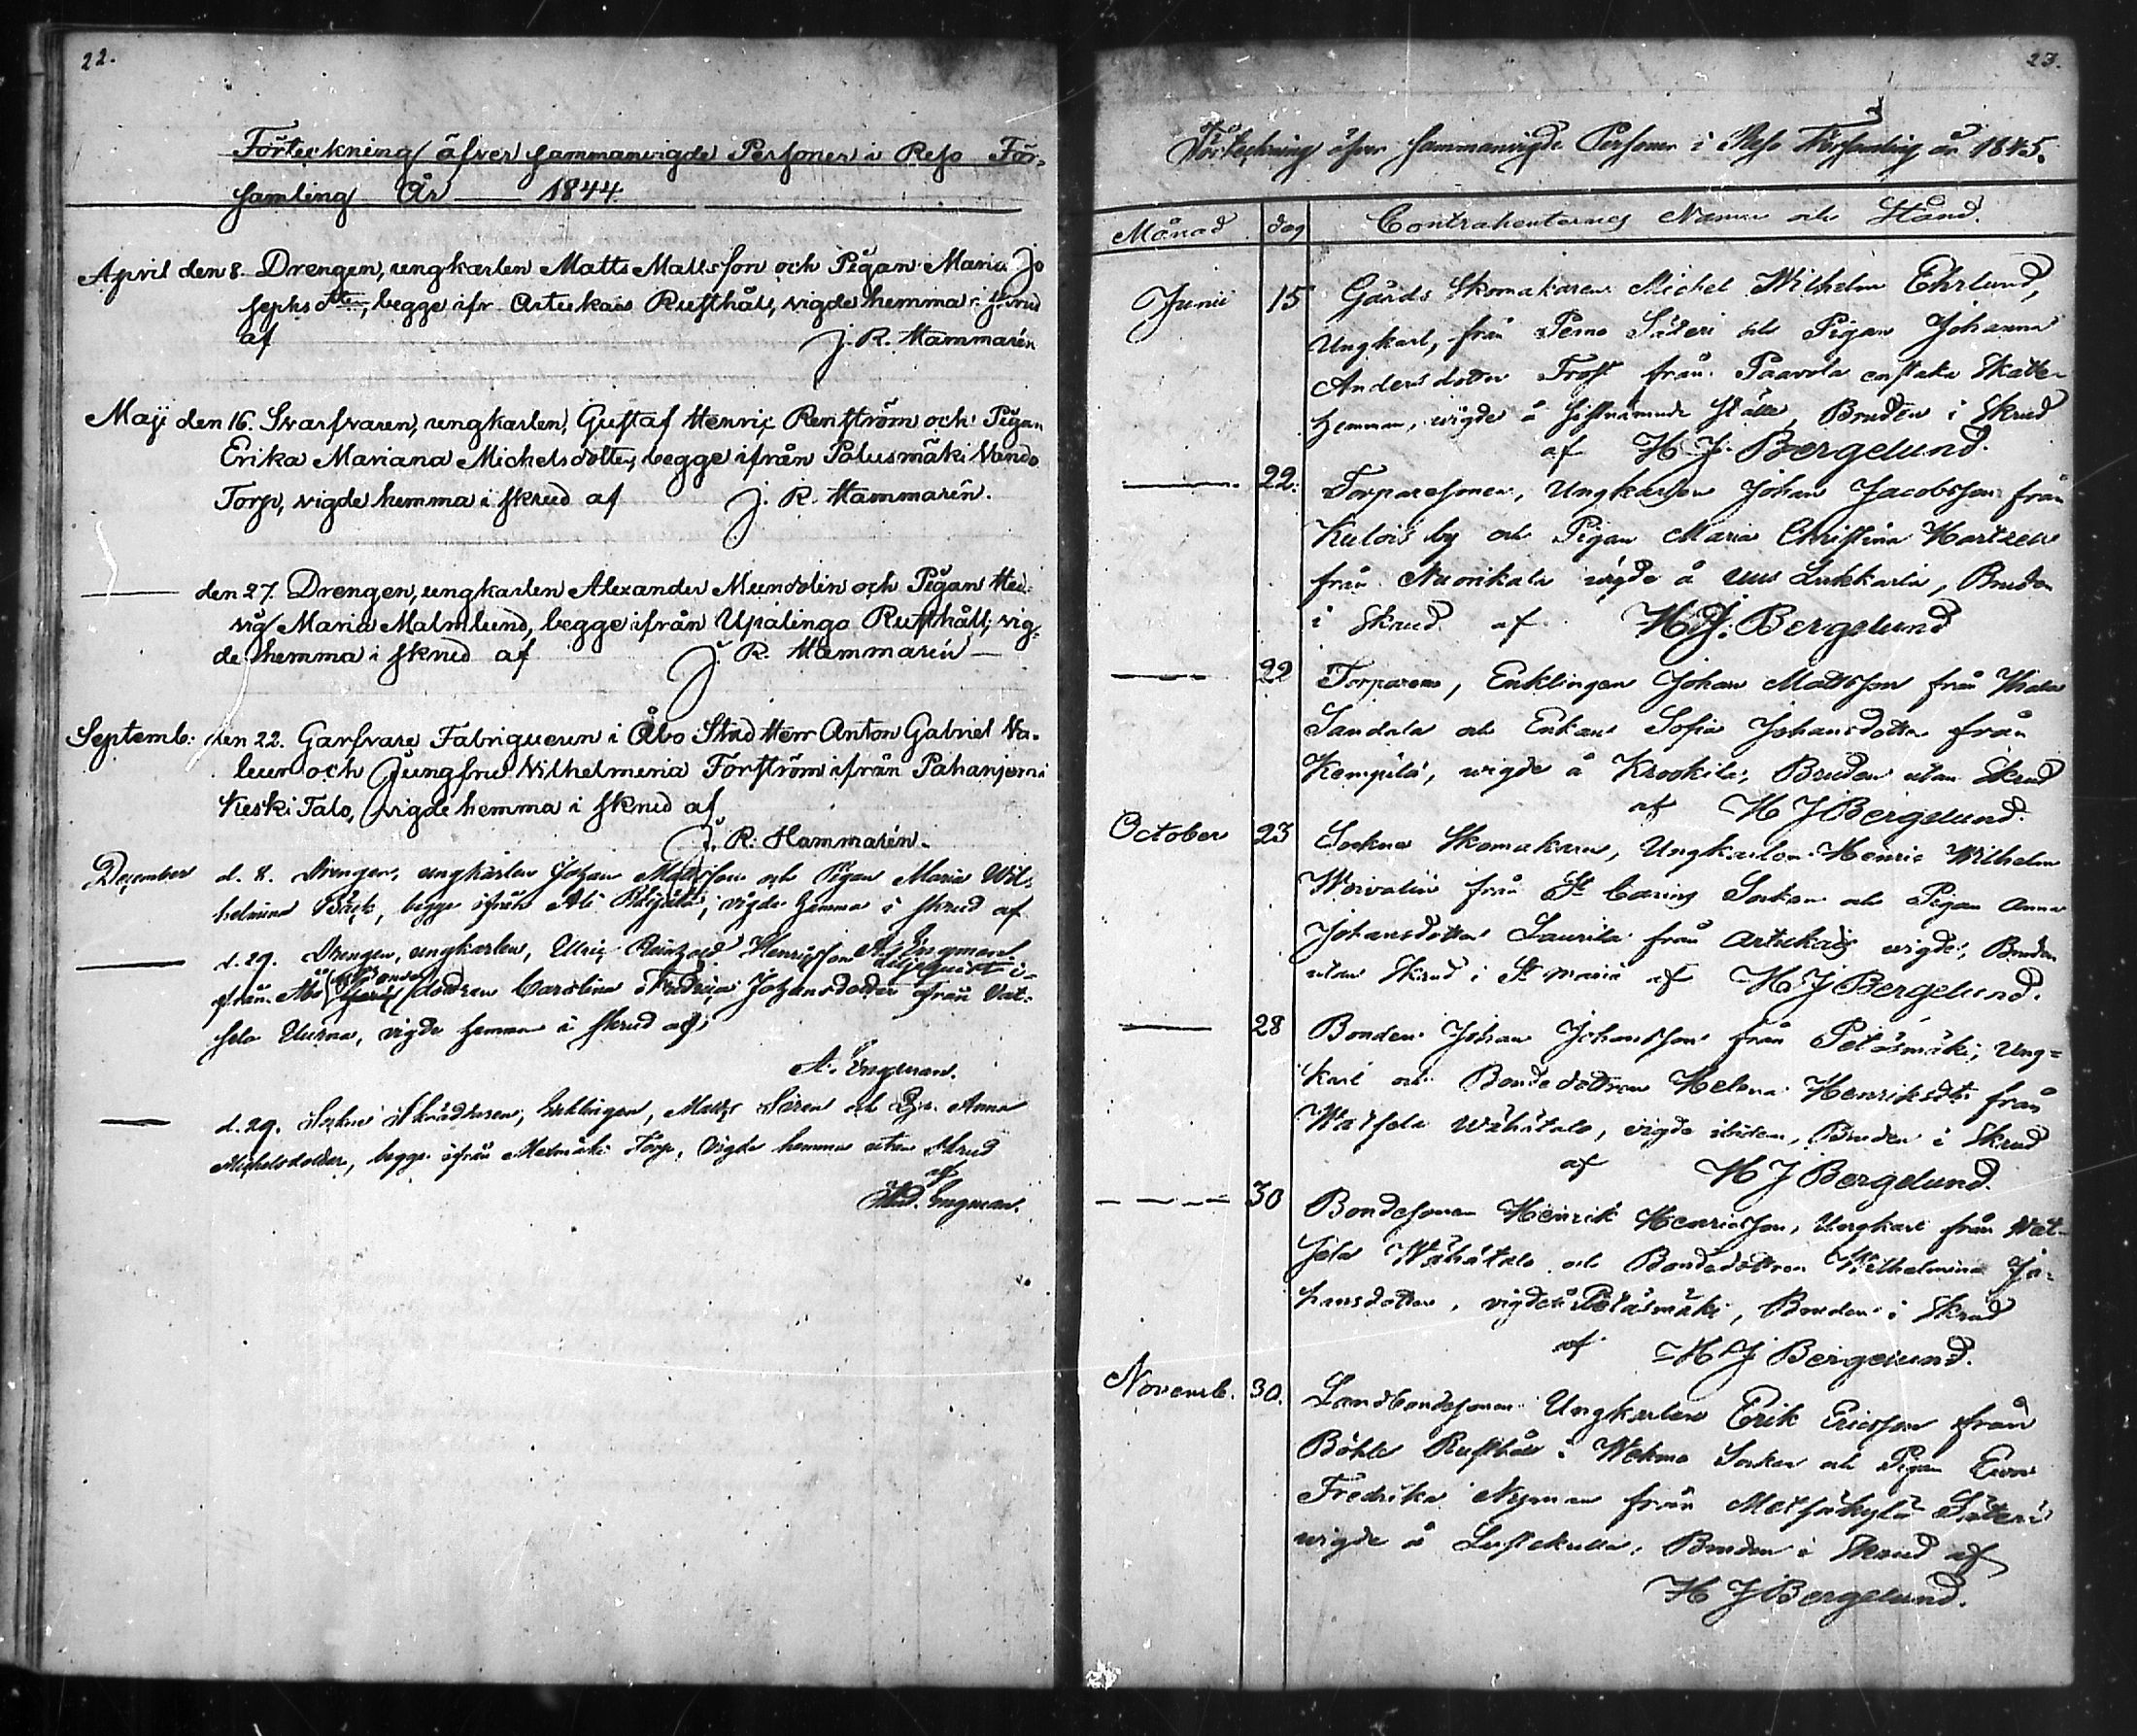 22.
Förteckning öfver sammanvigde Personer i Reso För-
samling År 1844.
April den 8. Drengen, ungkarlen Matts Mattsson och Pigan Maria Jo
sephsdtter, begge ifr. Artukais Rusthåll, vigde hemma i skrud
af J. R. Hammarén
Maji den 16. Svarfvaren, ungkarlen, Gustaf Henric Renström och Pigan
Erika Mariana Michelsdotter, begge ifrån Palusmäki Vando
Torp, vigde hemma i skrud af J. R. Hammarén.
den 27. Drengen, ungkarlen Alexander Mundolin och Pigan Hed-
vig Maria Malmlund, begge ifrån Upalingo Rusthåll, vig-
de hemma i skrud af J. R. Hammarén
Septemb: den 22. Garfvare Fabriqueuren i Åbo Stad Herr Anton Gabriel Va-
leur och Jungfru Vilhelmina Forström ifrån Pahanjemi
Keski Talo, vigde hemma i skrud af
J. R. Hammarén.
December d. 8. Drengen, ungkarlen Johan Mattsson och Pigan Maria Wil-
helmina Bäck, begge ifrån Ali, vigde hemma i skrud af
A. Engman.
d. 29. Drengen, ungkarlen, Ulric Reinhold Henricsson
ifrån Åbo dottren Carolina Fredrica Johansdotter ifrån Vat-
sela Uurna, vigde hemma i skrud af
A. Engman.
d. 29. Sockne Skräddaren, Enklingen, Matts Siren och Anna
Michelsdotter, begge ifrån Metsmäki Torp, vigde hemma utan skrud
af
And. Engman.
23.
Förteckning öfver Sammanvigde Personer i Reso Församling år 1845.
Månad dag Contrahenternes Namn och Stånd.
Junii 15 Gårds Skomakaren Michel Wilhelm Ehrlund,
Ungkarl, från Perno Säteri och Pigan Johanna
Andersdotter Frost från Paavola enstaka Skatte-
hemman, vigde å sistnämnde ställe, Bruden i Skrud
af H J. Bergelund.
22. Torparesonen, Ungkarlen Johan Jacobsson från
Kulois by och Pigan Maria Christina Hartzell
från Nuorikala vigde å Uus Lukkarla, Bruden
i Skrud af H J. Bergelund
22 Torparen, Enklingen Johan Mattsson från
Sandala och Enkan Sofia Johansdotter från
Kempilä, wigde å Krookila, Bruden utan Skrud
af H J Bergelund.
October 23 Sockne Skomakaren, Ungkarlen Henric Wilhelm
Woivalin från St Carins Sockn och Pigan Anna
Johansdotter Laurila från Artukais wigde, Bruden
utan Skrud i St Maria af H J Bergelund.
28 Bonden Johan Johansson från Petäsmäki, Ung-
karl och Bondedottren Helena Henriksdtr från
Watsela Wähätalo, vigde ibidem, Bruden i Skrud
af H J Bergelund.
30 Bondesonen Henrik Henricsson, Ungkarl från Wat-
sela Wähätalo och Bondedottren Wilhelmina Jo-
hansdotter, vigde i Petäsmäki, Bruden i Skrud
af H J Bergelund.
Novemb. 30. Landbondesonen Ungkarlen Erik Ericsson från
Böhle Rusthåll i Wehmo Socken och Pigan Eva
Fredrika Nyman från Metsäkylä Säteri
wigde å Lustekulla, Bruden i Skrud af
H J Bergelund.